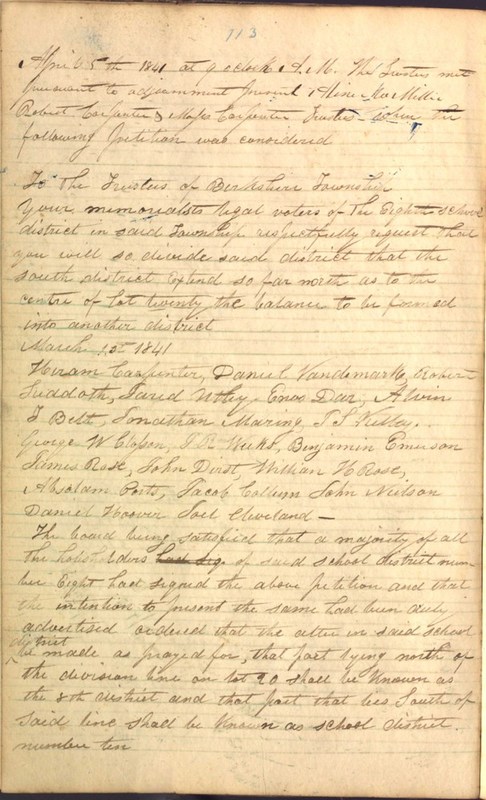 113
April 5th 1841 at 9 oclock A. M. The Trustees met
pursuant to adjournment present
Robert Carpenter & Carpenter Trustees when the
following petition was considered
To The Trustees of Berkshire Township
Your memorialists legal voters of the Eighth school
district in said Township respectfully request that
you will so divide said district that the
south district extend so far north as to the
centre of lot twenty the balance to be formed
into another district
March 1st 1841
Hiram Carpenter, Daniel Vandemark, Robert
Suddoth, Jarid Utley, Enos Dar, Alvin
T Belt, Jonathan Maring,
George W Closson, Weeks, Benjamin Emerson
James Rose, John Dirst William H Rose,
Absolam Ports, Jacob Collum John Neilson
Daniel Hoover Joel Cleveland —
The board being satisfied that a majority of all
the householders had sig. of said school district num
ber Eight had signed the above petition and that
the intention to present the same had been duly
advertised ordered that the alter in said school
district
be made as prayed for, that part lying north of
the division line on lot 20 shall be Known as
the 8th district and that part that lies South of
Said line shall be Known as school district
number ten